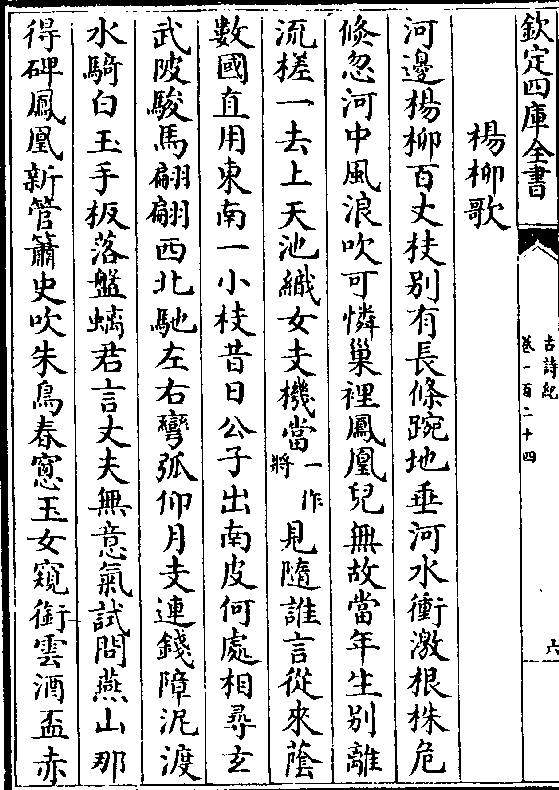 欽定四庫全書
古詩紀
卷一百二十四
六
楊柳歌
河邊楊柳百丈枝別有長條踠地垂河水衝激根株危
倐忽河中風浪吹可憐巢裡鳳凰兒無故當年生別離
流槎一去上天池織女支機當一作將見隨誰言從來蔭
數國直用東南一小枝昔日公子出南皮何處相尋玄
武陂駿馬翩翩西北馳左右彎弧仰月支連錢障泥渡
水騎白玉手板落盤螭君言丈夫無意氣試問燕山那
得碑鳳凰新管簫史吹朱鳥春窻玉女窺銜雲酒盃赤